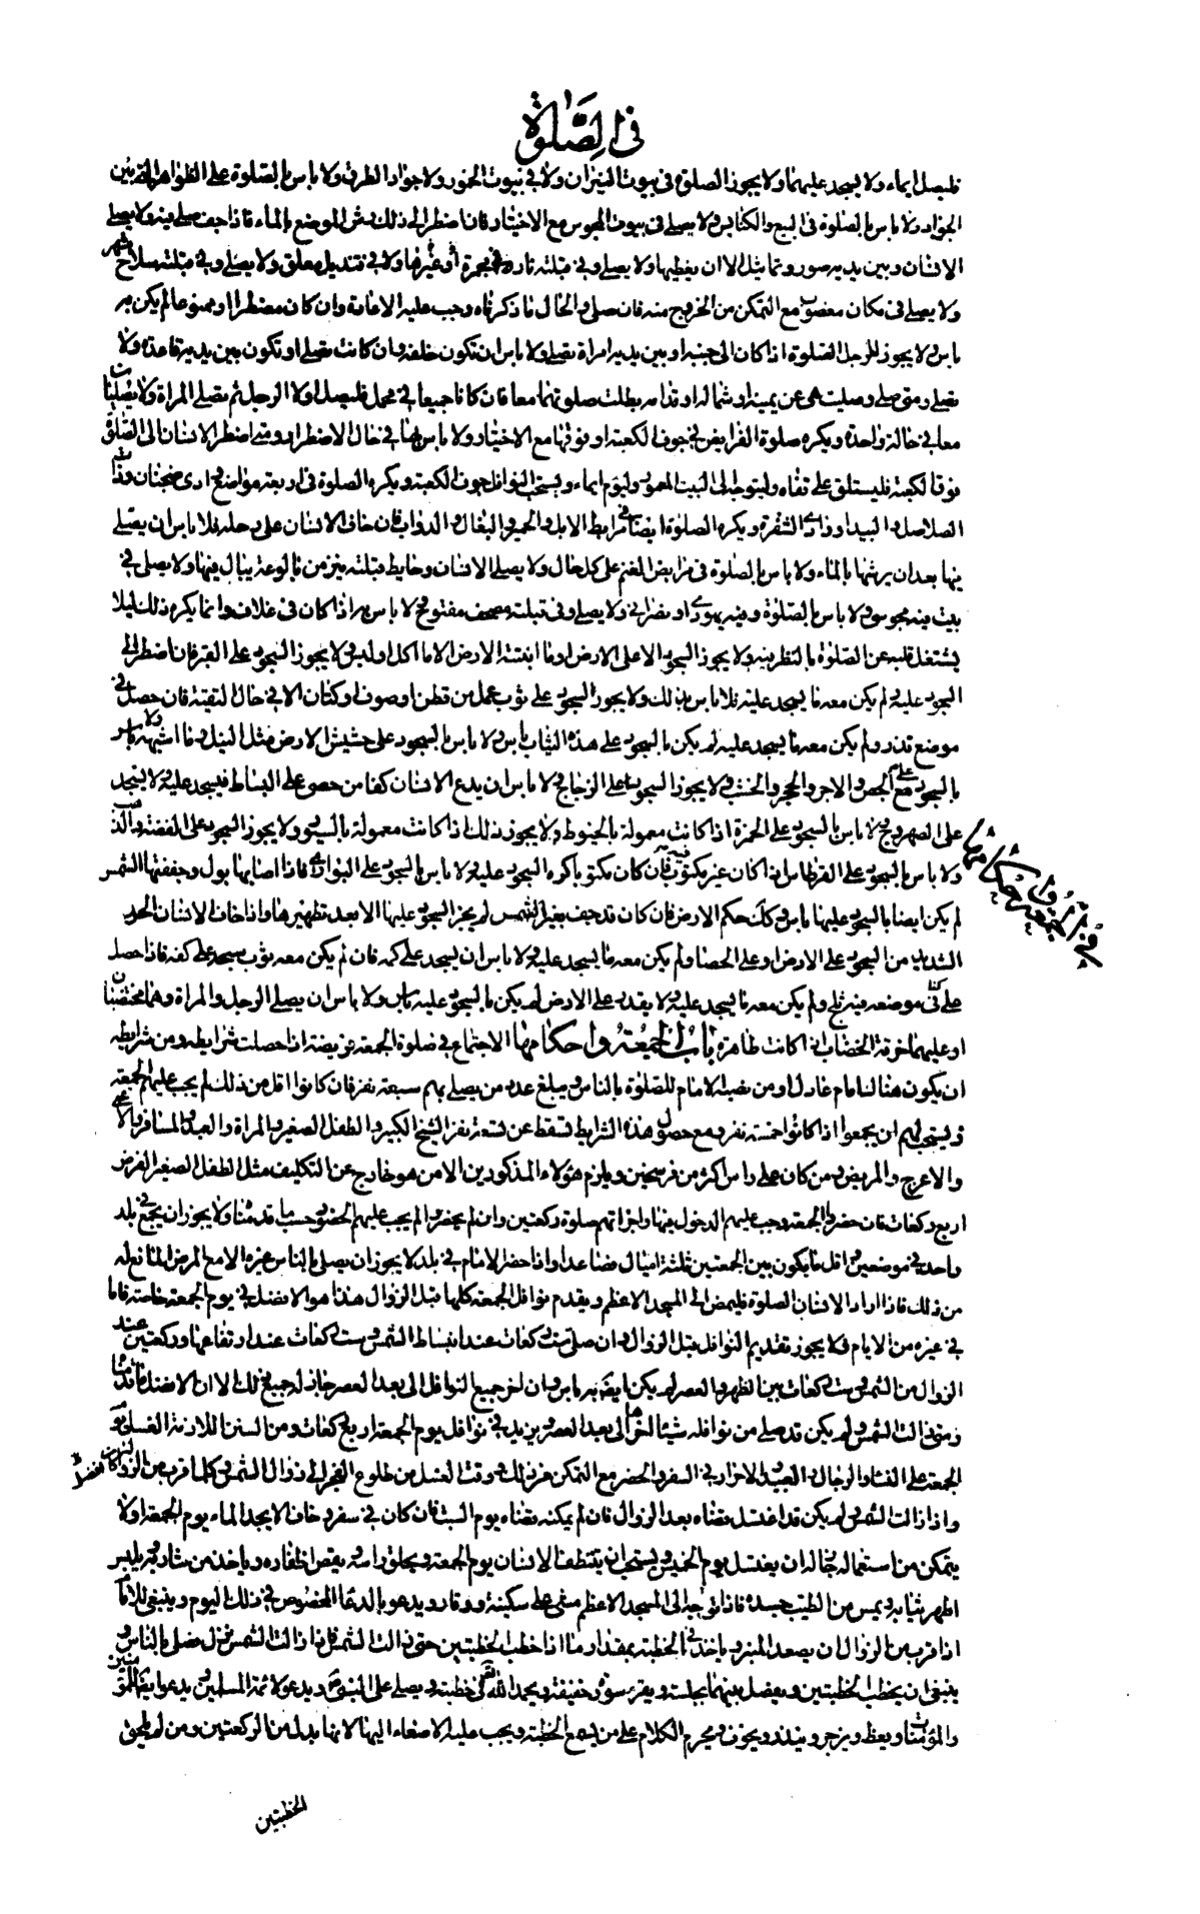 في الصلوة
فليصل ايماء ولا يسجد عليهما ولا يجوز الصلوة في بيوت النيران ولا في بيوت الخمور ولا جواد الطرق ولا باس بالصلوة على الظواهر التي بين
الجواد ولا باس بالصلوة في البيع والكنايس ولا يصلي في بيوت المجوس مع الاختيار فان اضطر الى ذلك رش الموضع بالماء فاذا جف صلى فيه ولا يصلي
الانسان وبين يديه صور وتماثيل الا ان يغطيها ولا يصلي وفي قبلته نار في مجمرة او غيرها ولا في قنديل معلق ولا يصلي وفي قبلته سلاح مشهر
ولا يصلي في مكان مغصوب مع التمكن من الخروج منه فان صلى والحال ما ذكرناه وجب عليه الاعادة وان كان مضطرا او ممنوعا لم يكن به
باس ولا يجوز للرجل الصلوة اذا كان الى جنبه او بين يديه امراة تصلي ولا باس ان تكون خلفه وان كانت تصلي او تكون بين يديه قاعدة ولا
تصلي ومتى صلى وصلت هى عن يمينه او شماله او قدامه بطلت صلوتهما معا فان كانا جميعا في محمل فليصل اولا الرجل ثم تصلي المراة ولا يصليان
معا في حالة واحدة ويكره صلوة الفرايض في جوف الكعبة او فوقها مع الاختيار ولا باس بها في حال الاضطرار ومتى اضطر الانسان الى الصلوة
فوق الكعبة فليستلق على قفاه وليتوجه الى البيت المعمور وليوم ايماء ويستحب النوافل جوف الكعبة ويكره الصلوة في اربعة مواضع وادى ضجنان وذات
الصلاصل والبيداء ووادى الشقرة ويكره الصلوة ايضا في مرابط الابل والحمير والبغال والدواب فان خاف الانسان على رحله فلا باس ان يصلي
فيها بعد ان يرشها بالماء ولا باس بالصلوة في مرابض الغنم على كل حال ولا يصلي الانسان وحايط قبلته ينز من بالوعة يبال فيها ولا يصلي في
بيت فيه مجوسي ولا باس بالصلوة وفيه يهودي او نصراني ولا يصلي وفي قبلته مصحف مفتوح ولا باس به اذا كان في غلاف وانما يكره ذلك ليلا
يشتغل قلبه عن الصلوة بالنظر فيه ولا يجوز السجود الا على الارض او ما انبتته الارض الا ما اكل او لبس ولا يجوز السجود على القبر فان اضطر الى
السجود عليه ولم يكن معه ما يسجد عليه فلا باس بذلك ولا يجوز السجود على ثوب عمل من قطن او صوف او كتان الا في حال التقية فان حصل في
موضع قذر ولم يكن معه ما يسجد عليه لم يكن بالسجود على هذه الثياب باس ولا باس بالسجود على حشيش الارض مثل الثيل وما اشبهه ولا باس
بالسجود على الجص والاجر والحجر والخشب ولا يجوز السجود على الزجاج ولا باس ان يدع الانسان كفا من حصى على البساط فيسجد عليه ولا يسجد
على الصهروج ولا باس بالسجود على الخمرة اذا كانت معمولة بالخيوط ولا يجوز ذلك اذا كانت معمولة بالسيور ولا يجوز السجود على الفضة والذهب
ولا باس بالسجود على القرطاس اذا كان غير مكتوب فيه فان كان مكتوبا كره السجود عليه ولا باس بالسجود على البوارى فاذا اصابها بول وجففتها الشمس
لم يكن ايضا بالسجود عليها باس وكذلك حكم الارض فان كان قد جف بغير الشمس لم يجز السجود عليها الا بعد تطهيرها واذا خاف الانسان الحر
الشديد من السجود على الارض او على الحصا ولم يكن معه ما يسجد عليه فلا باس ان يسجد على كمه فان لم يكن معه ثوب سجد على كفه فاذا حصل
على موضع فيه ثلج ولم يكن معه ما يسجد عليه ولا يقدر على الارض لم يكن بالسجود عليه باس ولا باس ان يصلي الرجل والمراة وهما مختضبان
او عليهما خرقة الخضاب اذا كانت طاهرة باب الجمعة واحكامها الاجتماع في صلوة الجمعة فريضة اذا حصلت شرايطه ومن شرايطه
ان يكون هناك امام عادل او من نصبه الامام للصلوة بالناس ويبلغ عدد من يصلي بهم سبعة نفر فان كانوا اقل من ذلك لم يجب عليهم الجمعة
ويستحب لهم ان يجمعوا اذا كانوا خمسة نفر ومع حصول هذه الشرايط تسقط عن تسعة نفر الشيخ الكبير والطفل الصغير والمراة والعبد والمسافر والاعمى
والاعرج والمريض ومن كان على راس اكثر من فرسخين ويلزم هؤلاء المذكورين الا من هو خارج عن التكليف مثل الطفل الصغير الفرض
اربع ركعات فان حضروا الجمعة وجب عليهم الدخول فيها واجزاتهم صلوة ركعتين وان لم يحضروا لم يجب عليهم الحضور حسب ما قدمناه ولا يجوز ان يجمع في بلد
واحد في موضعين واقل ما يكون بين الجمعتين ثلثة اميال فصاعدا واذا حضر الامام في بلد لا يجوز ان يصلي بالناس غيره الا مع المرض المانع له
من ذلك فاذا اراد الانسان الصلوة فليمض الى المسجد الاعظم ويقدم نوافل الجمعة كلها قبل الزوال هذا هو الافضل في يوم الجمعة خاصة فاما
في غيره من الايام فلا يجوز تقديم النوافل قبل الزوال وان صلى ست ركعات عند انبساط الشمس وست ركعات عند ارتفاعها وركعتين عند
الزوال من الشمس وست ركعات بين الظهر والعصر لم يكن ايضا به باس وان اخر جميع النوافل الى بعد العصر جاز له جميع ذلك الا ان الافضل ما قدمناه
ومتى زالت الشمس ولم يكن قد صلى من نوافله شيئا اخرها الى بعد العصر ويزيد في نوافل يوم الجمعة اربع ركعات ومن السنن اللازمة الغسل يوم
الجمعة على النساء والرجال والعبيد والاحرار في السفر والحضر مع التمكن من ذلك ووقت الغسل من طلوع الفجر الى زوال الشمس وكلما قرب من الزوال كان افضل
واذا زالت الشمس ولم يكن قد اغتسل قضاه بعد الزوال فان لم يمكنه قضاه يوم السبت فان كان في سفر وخاف الا يجد الماء يوم الجمعة او لا
يتمكن من استعماله جاز له ان يغتسل يوم الخميس ويستحب ان يتنظف الانسان يوم الجمعة ويحلق راسه ويقص اظفاره وياخذ من شاربه ويلبس
اطهر ثيابه ويمس من الطيب جسده فاذا توجه الى المسجد الاعظم مشى على سكينة ووقار ويدعو بالدعاء المخصوص في ذلك اليوم وينبغي للامام
اذا قرب من الزوال ان يصعد المنبر وياخذ في الخطبة بمقدار ما اذا خطب الخطبتين حتى زالت الشمس فاذا زالت الشمس نزل فصلى بالناس و
ينبغي ان يخطب الخطبتين ويفصل بينهما بجلسة ويقرء سورة خفيفة ويحمد الله تعالى في خطبته ويصلي على النبي ص ويدعو لائمة المسلمين ويدعو ايضا للمؤمنين
والمؤمنات ويعظ ويزجر وينذر ويخوف ويحرم الكلام على من يسمع الخطبة ويجب عليه الاصغاء اليها لانها بدل من الركعتين ومن لم يلحق
الخطبتين